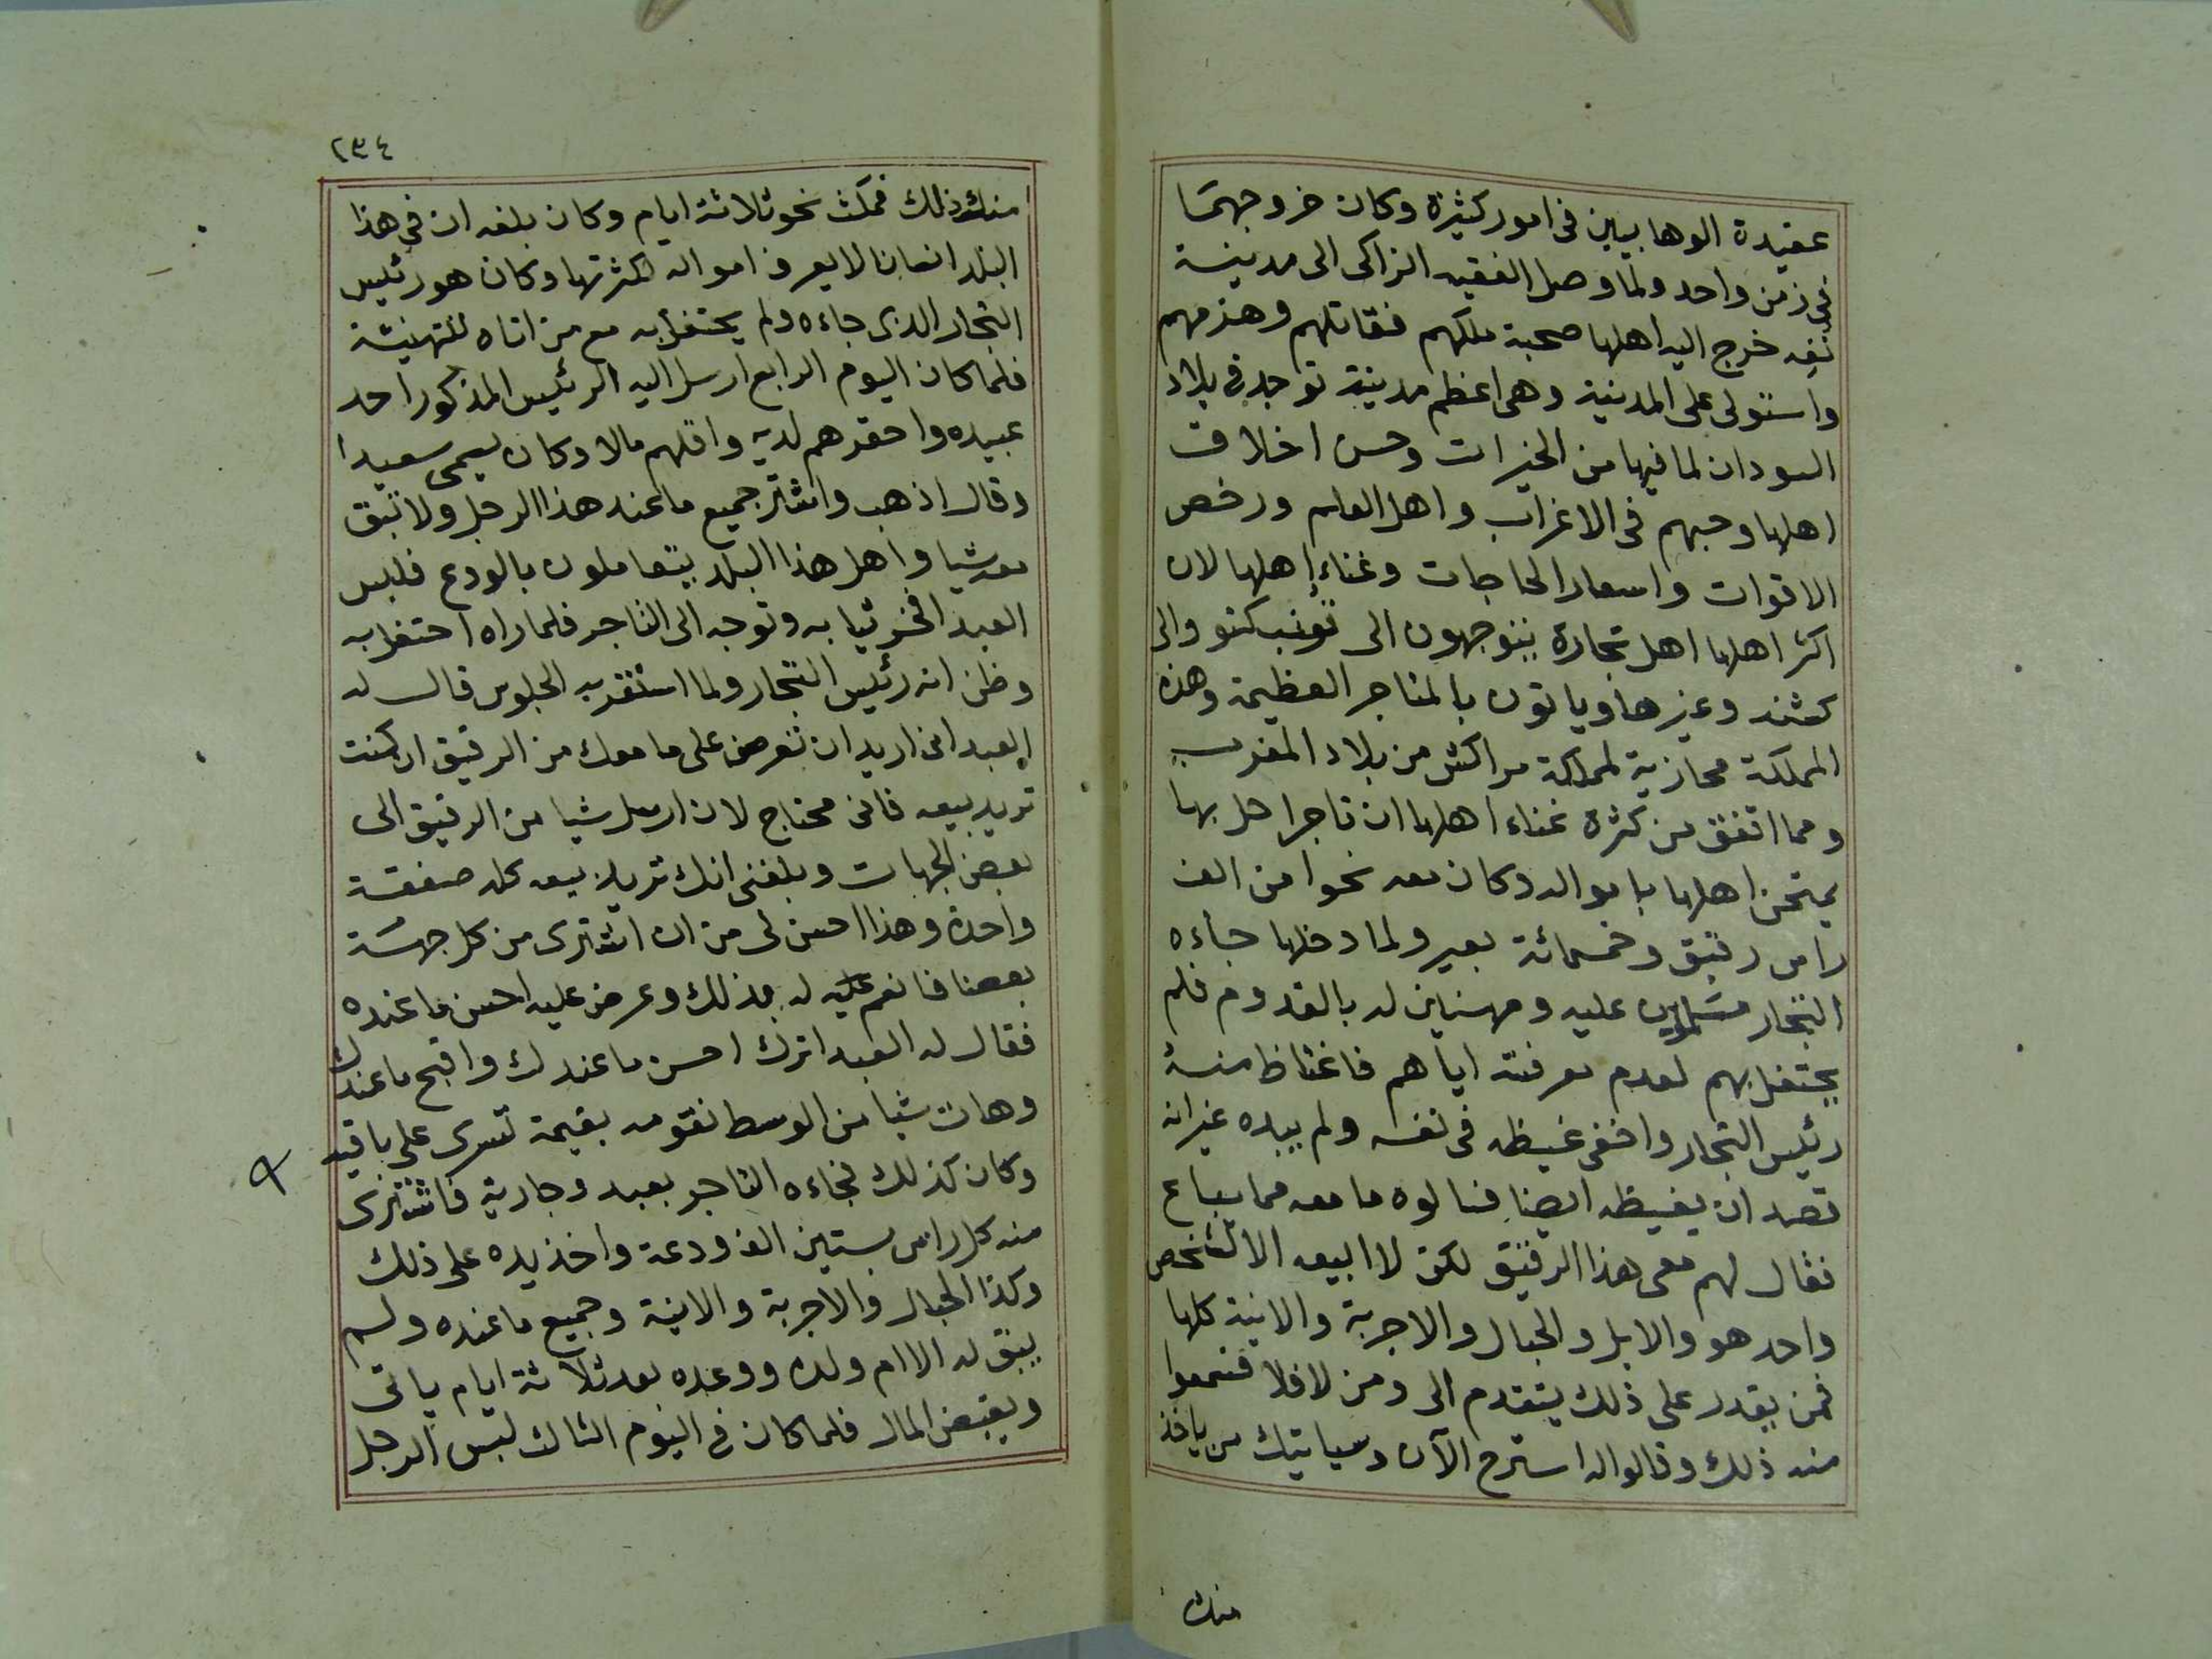 عقيدة الوهابيين فى امور كثيرة وكان خروجهما
فى زمن واحد ولما وصل الفقيه الزاكى الى مدينة
نفه خرج اليه اهلها صحبة ملكهم فقاتلهم وهزمهم
واستولى على المدينة وهى اعظم مدينة توجد فى بلاد
السودان لما فيها من الخيرات وحسن اخلاق
اهلها وحبهم فى الاغراب واهل العلم ورخص
الاقوات واسعار الحاجات وغناء اهلها لان
اكثر اهلها اهل تجارة يتوجهون الى تونب كتو والى
كشنه وغيرها وياتون بالمتاجر العظيمة وهذه
المملكة محازية لمملكة مراكش من بلاد المغرب
ومما اتفق من كثرة غناء اهلها ان تاجرا حل بها
يمتحن اهلها باموالہ وكان معه نحوا من الف
راس رقيق وخمسمائة بعير ولما دخلها جاءه
التجار مسلمين عليه ومهنئين له بالقدوم فلم
يحتفل بهم لعدم معرفته اياهم فاغتاظ منه
رئيس التجار واخفى غيظه فى نفسه ولم يبده غير انه
قصد ان يغيظه ايضا فسالوه ما معه مما يباع
فقال لهم معى هذا الرقيق لكن لا ابيعه الا لشخص
واحد هو والابل والحبال والاجربة والانية كلها
فمن يقدر على ذلك يتقدم الى ومن لا فلا فسمعوا
منه ذلك وقالوا له استرح الآن وسياتيك من ياخذ
منك
٢٣٤
منك ذلك فمكث نحو ثلاثة ايام وكان بلغه ان فى هذا
البلد انسانا لا يعرف امواله لكثرتها وكان هو رئيس
التجار الذى جاءه ولم يحتفل به مع من اتاه للتهنئة
فلما كان اليوم الرابع ارسل اليه الرئيس المذكور احد
عبيده واحقرهم لديه واقلهم مالا وكان يسمى سعيدا
وقال اذهب واشتر جميع ما عند هذا الرجل ولا تبق
معه شيا واهل هذا البلد يتعاملون بالودع فلبس
العبد افخر ثيابه وتوجه الى التاجر فلما راه احتفل به
وظن انه رئيس التجار ولما استقر به الجلوس قال له
العبد انى اريد ان تعرض على ما معك من الرقيق ان كنت
تريد بيعه فانى محتاج لان ارسل شيا من الرقيق الى
بعض الجهات وبلغنى انك تريد بيعه كله صفقة
واحدة وهذا احسن لى من ان اشترى من كل جهة
بعضا فانعم عليه له بذلك وعرض عليه احسن ما عنده
فقال له العبد اترك احسن ما عندك واقبح ما عندك
وهات شيا من الوسط نقومه بقيمة تسرى على باقيه
وكان كذلك فجاءه التاجر بعبد وجارية فاشترى
منه كل راس بستين الف ودعة واخذ يده على ذلك
وكذا الحبال والاجربة والانية وجميع ما عنده ولم
يبق له الا ام ولده ووعده بعد ثلاثة ايام ياتى
ويقبض المال فلما كان فى اليوم الثالث لبس الرجل